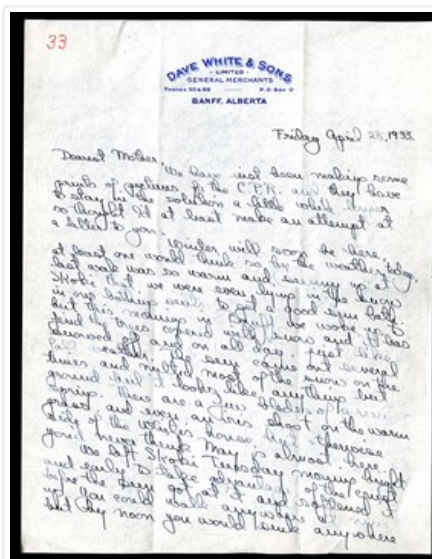 33
DAVE WHITE & SONS
LIMITED
GENERAL MERCHANTS
BANFF, ALBERTA
Friday April 28, 1933.
Dearest Mother, We have just been making some
prints of pictures for the C.P.R. and they have
to stay in the solution a little while longer
so thought I'd at least make an attempt at
a letter to you.
Winter will soon be here,
at least one would think so by the weather today.
Last week was so warm and sunny up at
Skoki that we were even lying in the snow
in our bathing suits to get a good sun bath
but this morning in Banff we woke up to
find the trees covered with snow and it has
snowed off and on all day. Just like
Fall weather. The sun came out several
times and melted most of the snow on the
ground but it looks like anything but
Spring. There are a few blades of green
grass and even shoot on the warm
side of the house, but otherwise
you'd never think May is almost here.
We left Skoki Tuesday morning bright
and early to take advantage of the crust
before the sun got at it and softened it
up. You could walk anywhere
but by noon you would sink anywhere